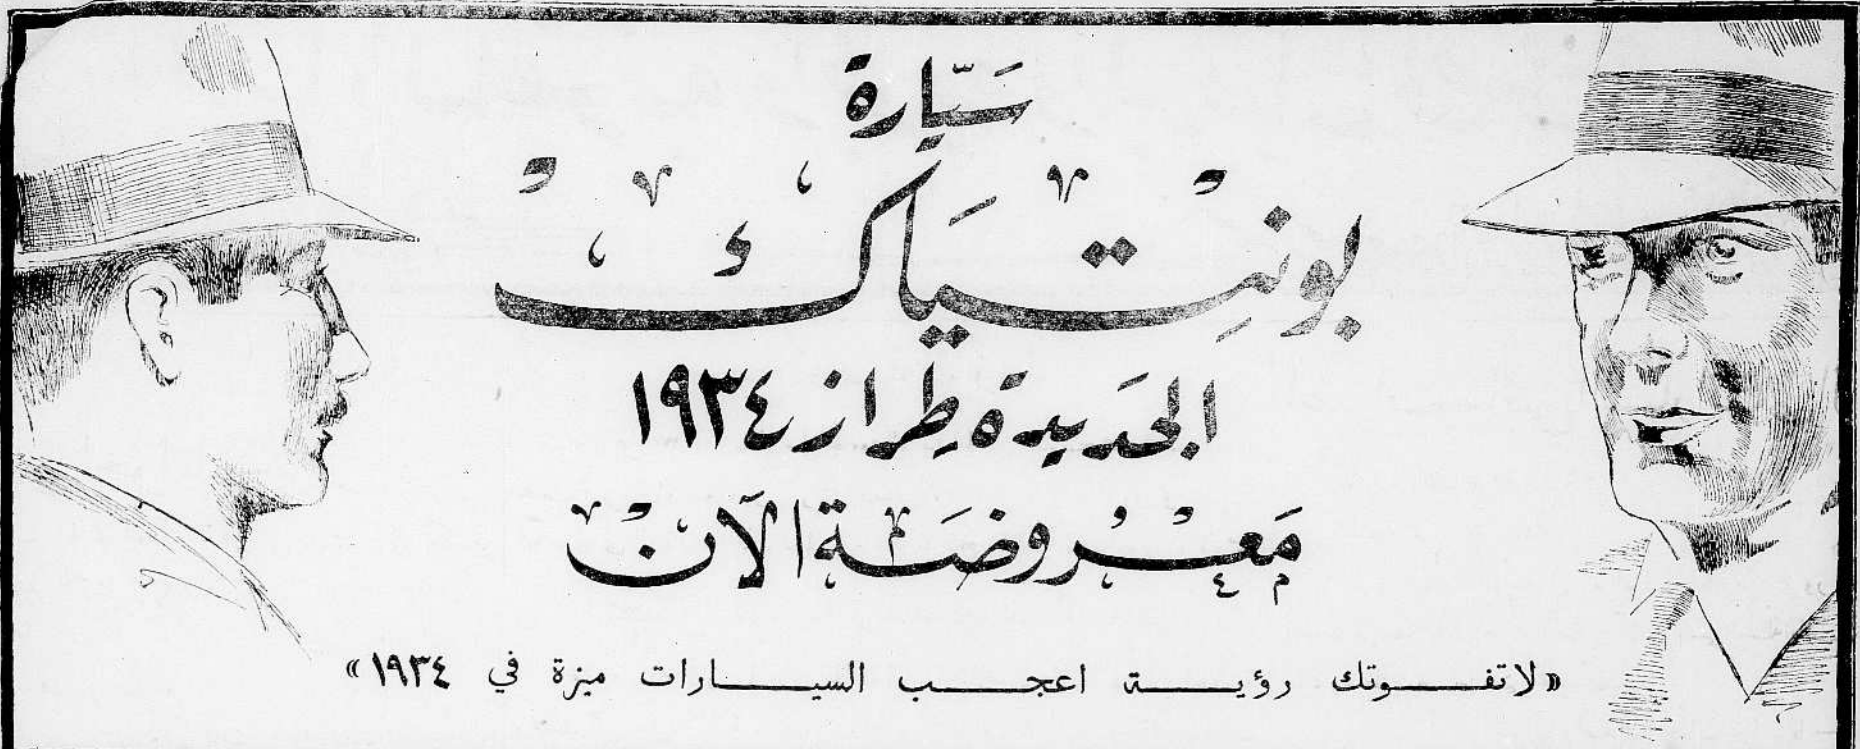 سَيّارة
بونِتيَاكْ
الجَديدة طِراز ١٩٣٤
مَعروضَة الآنْ
«لا تفوتك رؤية اعجب السيارات ميزة في ١٩٣٤»